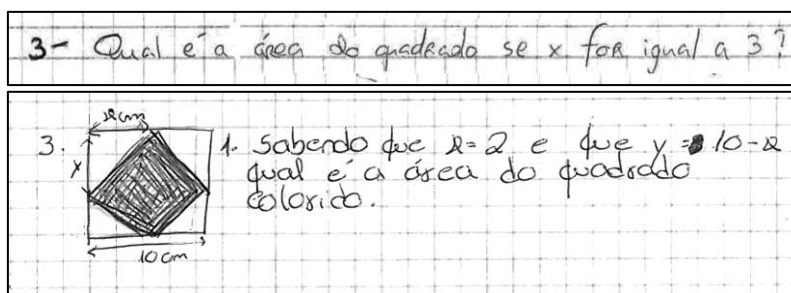 3- Qual é a área do quadrado se x for igual a 3?
x cm
3.
x
1. Sabendo que x=2 e que y = 10-x
qual é a área do quadrado
colorido.
10 cm